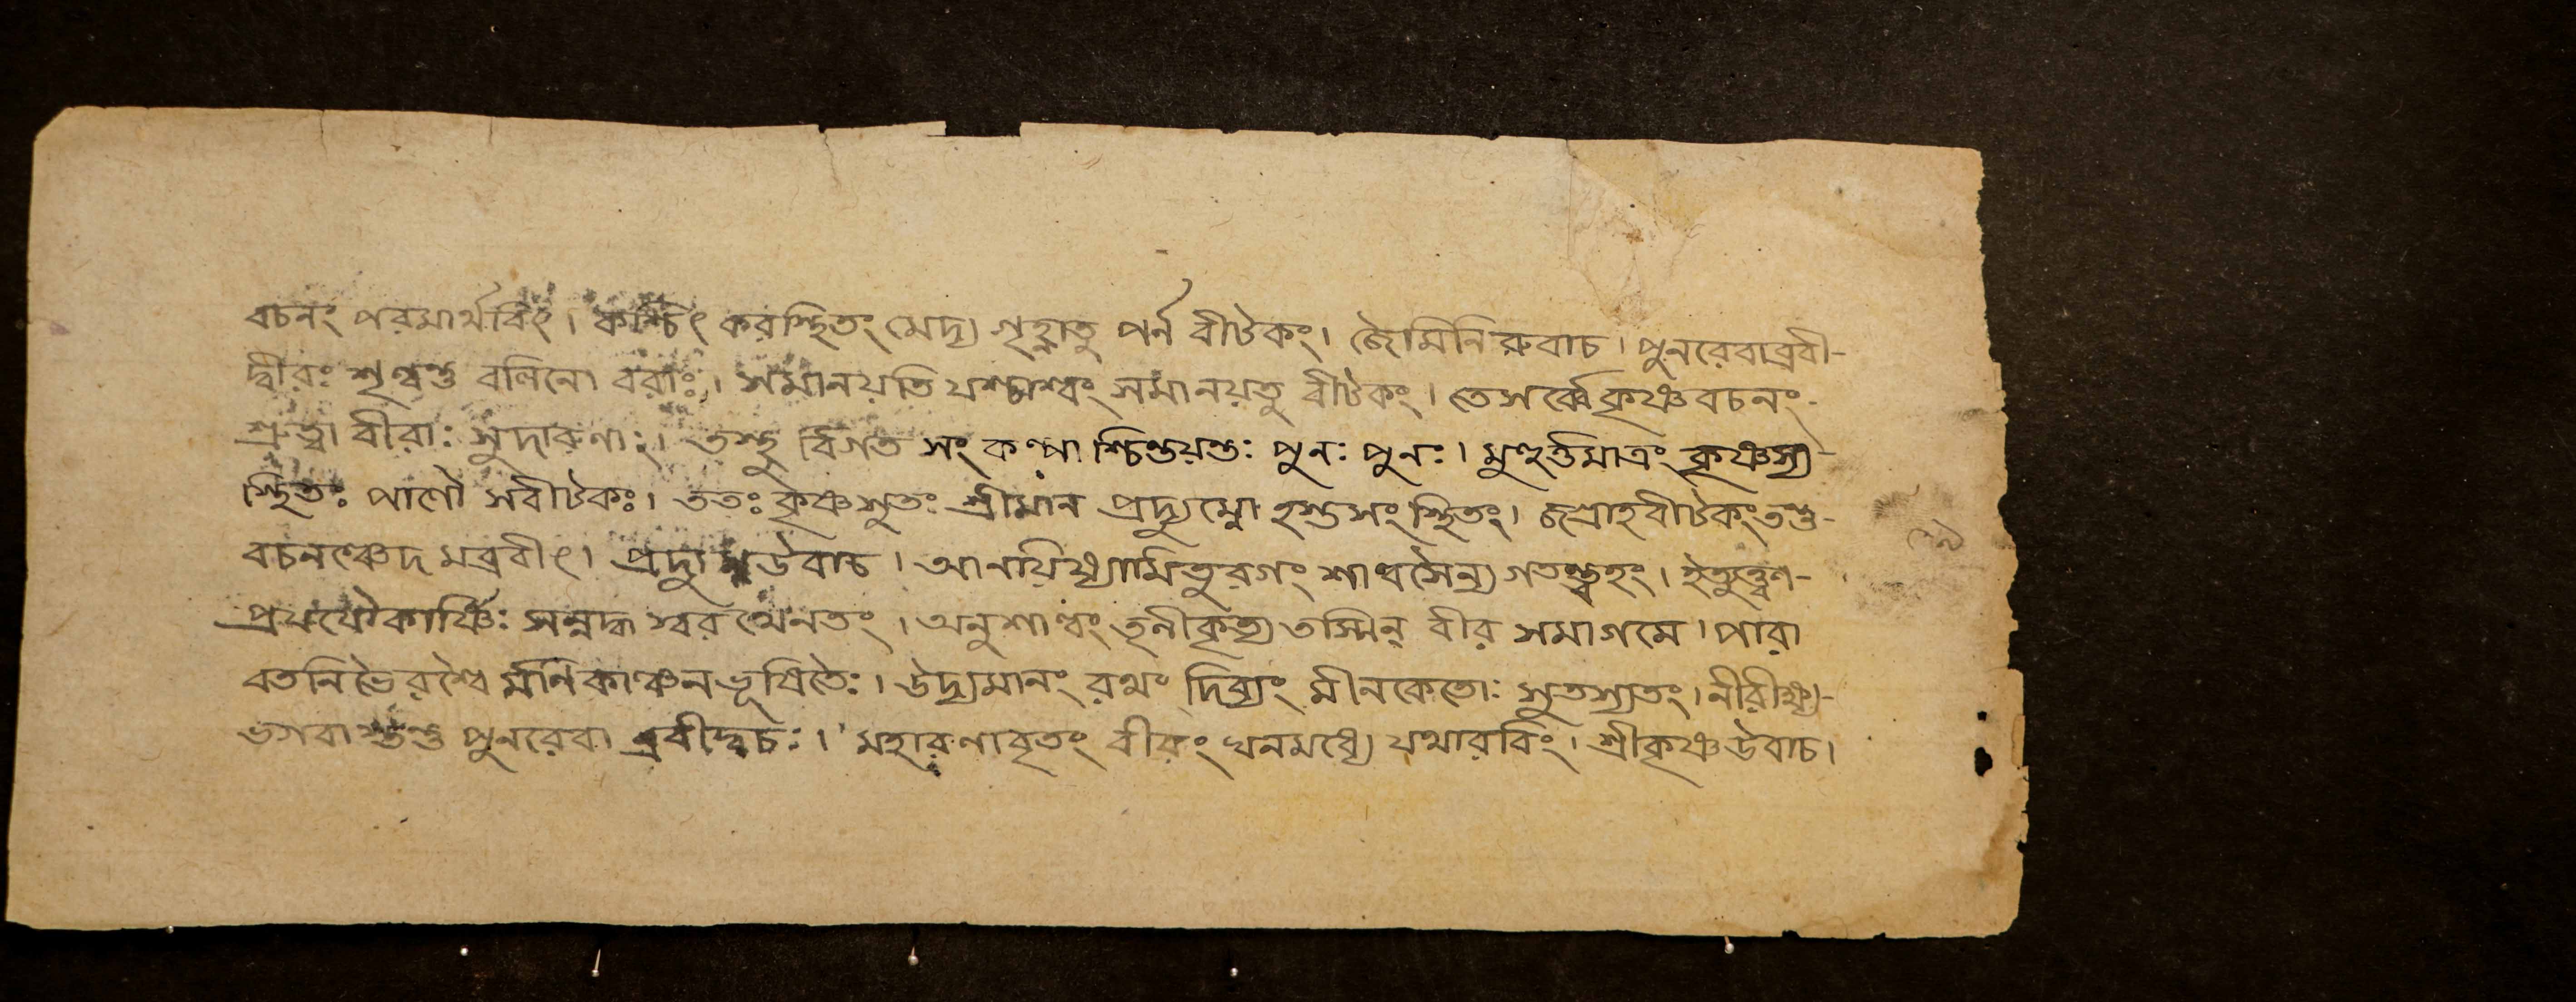 বচনং পরমার্থবিৎ। কশ্চিৎ করস্থিতং মেদ্য গৃহ্ণাতু পর্ন বীটকং। জৈমিনি রুবাচ। পুনরেবাব্রবী-
দ্বীরঃ শৃণ্বন্তু বলিনো বরাঃ। সমানয়তি যশ্চাশ্বং সমানয়তু বীটকং। তে সর্ব্বে কৃষ্ণবচনং-
শ্রুত্বা বীরাঃ সুদারুণাঃ। তস্থু র্বিগত সংকল্পা শ্চিন্তয়ন্তঃ পুনঃ পুনঃ। মুহূর্ত্তমাত্রং কৃষ্ণস্য-
স্থিতঃ পাণৌ সবীটকঃ। ততঃ কৃষ্ণসুতঃ শ্রীমান প্রদ্যুম্নো হস্তসংস্থিতং। জগ্রাহবীটকং তন্তু-
বচনঞ্চেদ মব্রবীৎ। প্রদ্যুম্ন উবাচ। আনয়িষ্যামি তুরগং শাল্বসৈন্য গতন্ত্বহং। ইত্যুক্ত্বা-
প্রযযৌ কার্ষ্ণিঃ সন্নদ্ধ স্বর থেনতং। অনুশাল্বং তৃনীকৃত্য তস্মিন্ বীর সমাগমে। পারা
বতনিভৈরশ্বৈ র্মনিকাঞ্চনভূষিতৈঃ। উদ্যমানং রথং দিব্যং মীনকেতোঃ সুতস্যতং। নীরীক্ষ্য-
ভগবা পুনরেবা ব্রবীদ্বচঃ। মহারণাবৃতং বীরং ঘনমধ্যে যথারবিং। শ্রীকৃষ্ণ উবাচ।